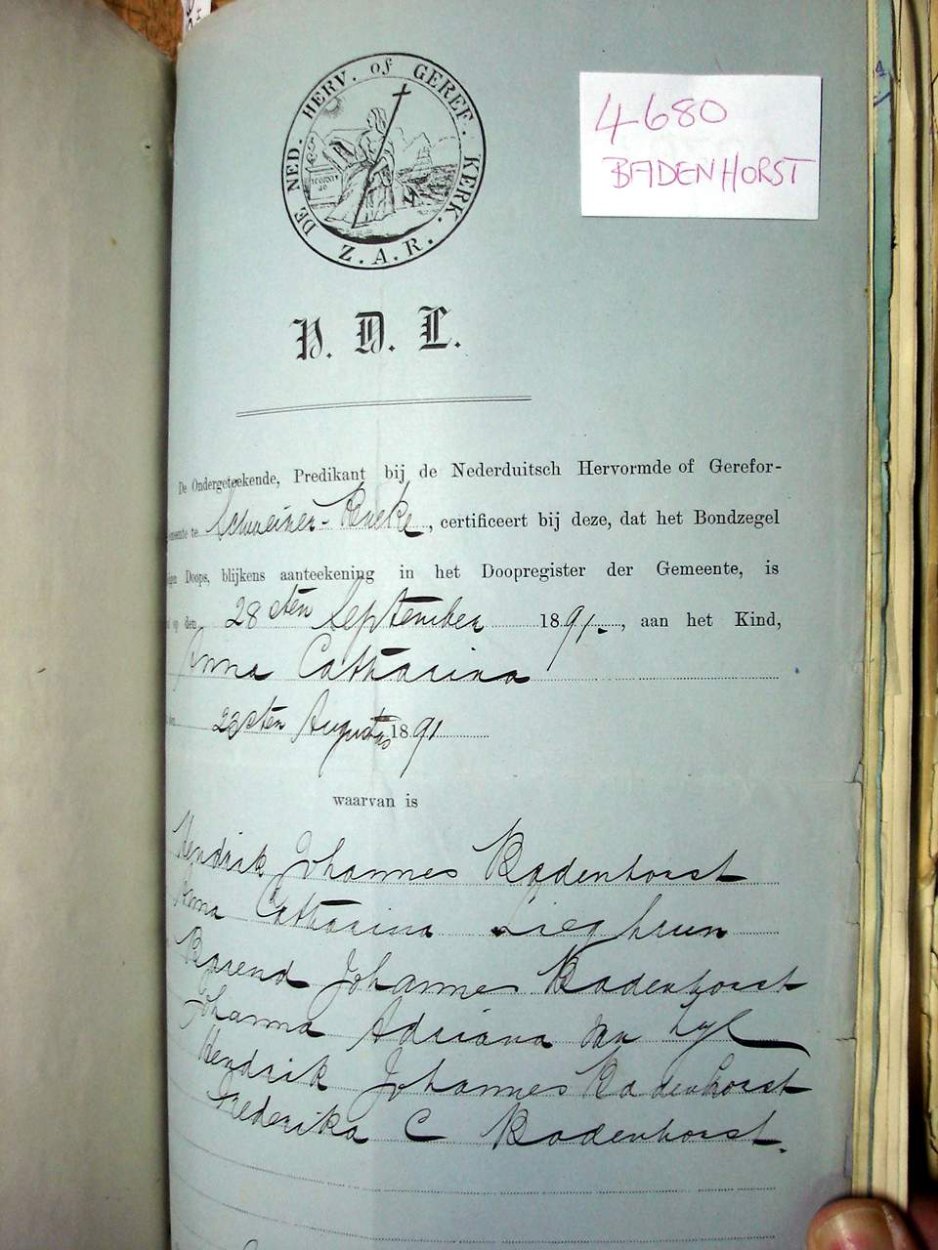 DE NED. HERV. of GEREF. KERK. Z.A.R.
4680
BADENHORST
V. D. L.
De Ondergeteekende, Predikant bij de Nederduitsch Hervormde of Gerefor-
te Schweizer-Reneke, certificeert bij deze, dat het Bondzegel
Doops, blijkens aanteekening in het Doopregister der Gemeente, is
op den 28sten September 1891., aan het Kind,
Anna Catharina
Augustus 1891
waarvan is
Hendrik Johannes Badenhorst
Anna Catharina
Barend Johannes Badenhorst
Johanna Adriana van Zyl
Hendrik Johannes Badenhorst
Frederika C Badenhorst.